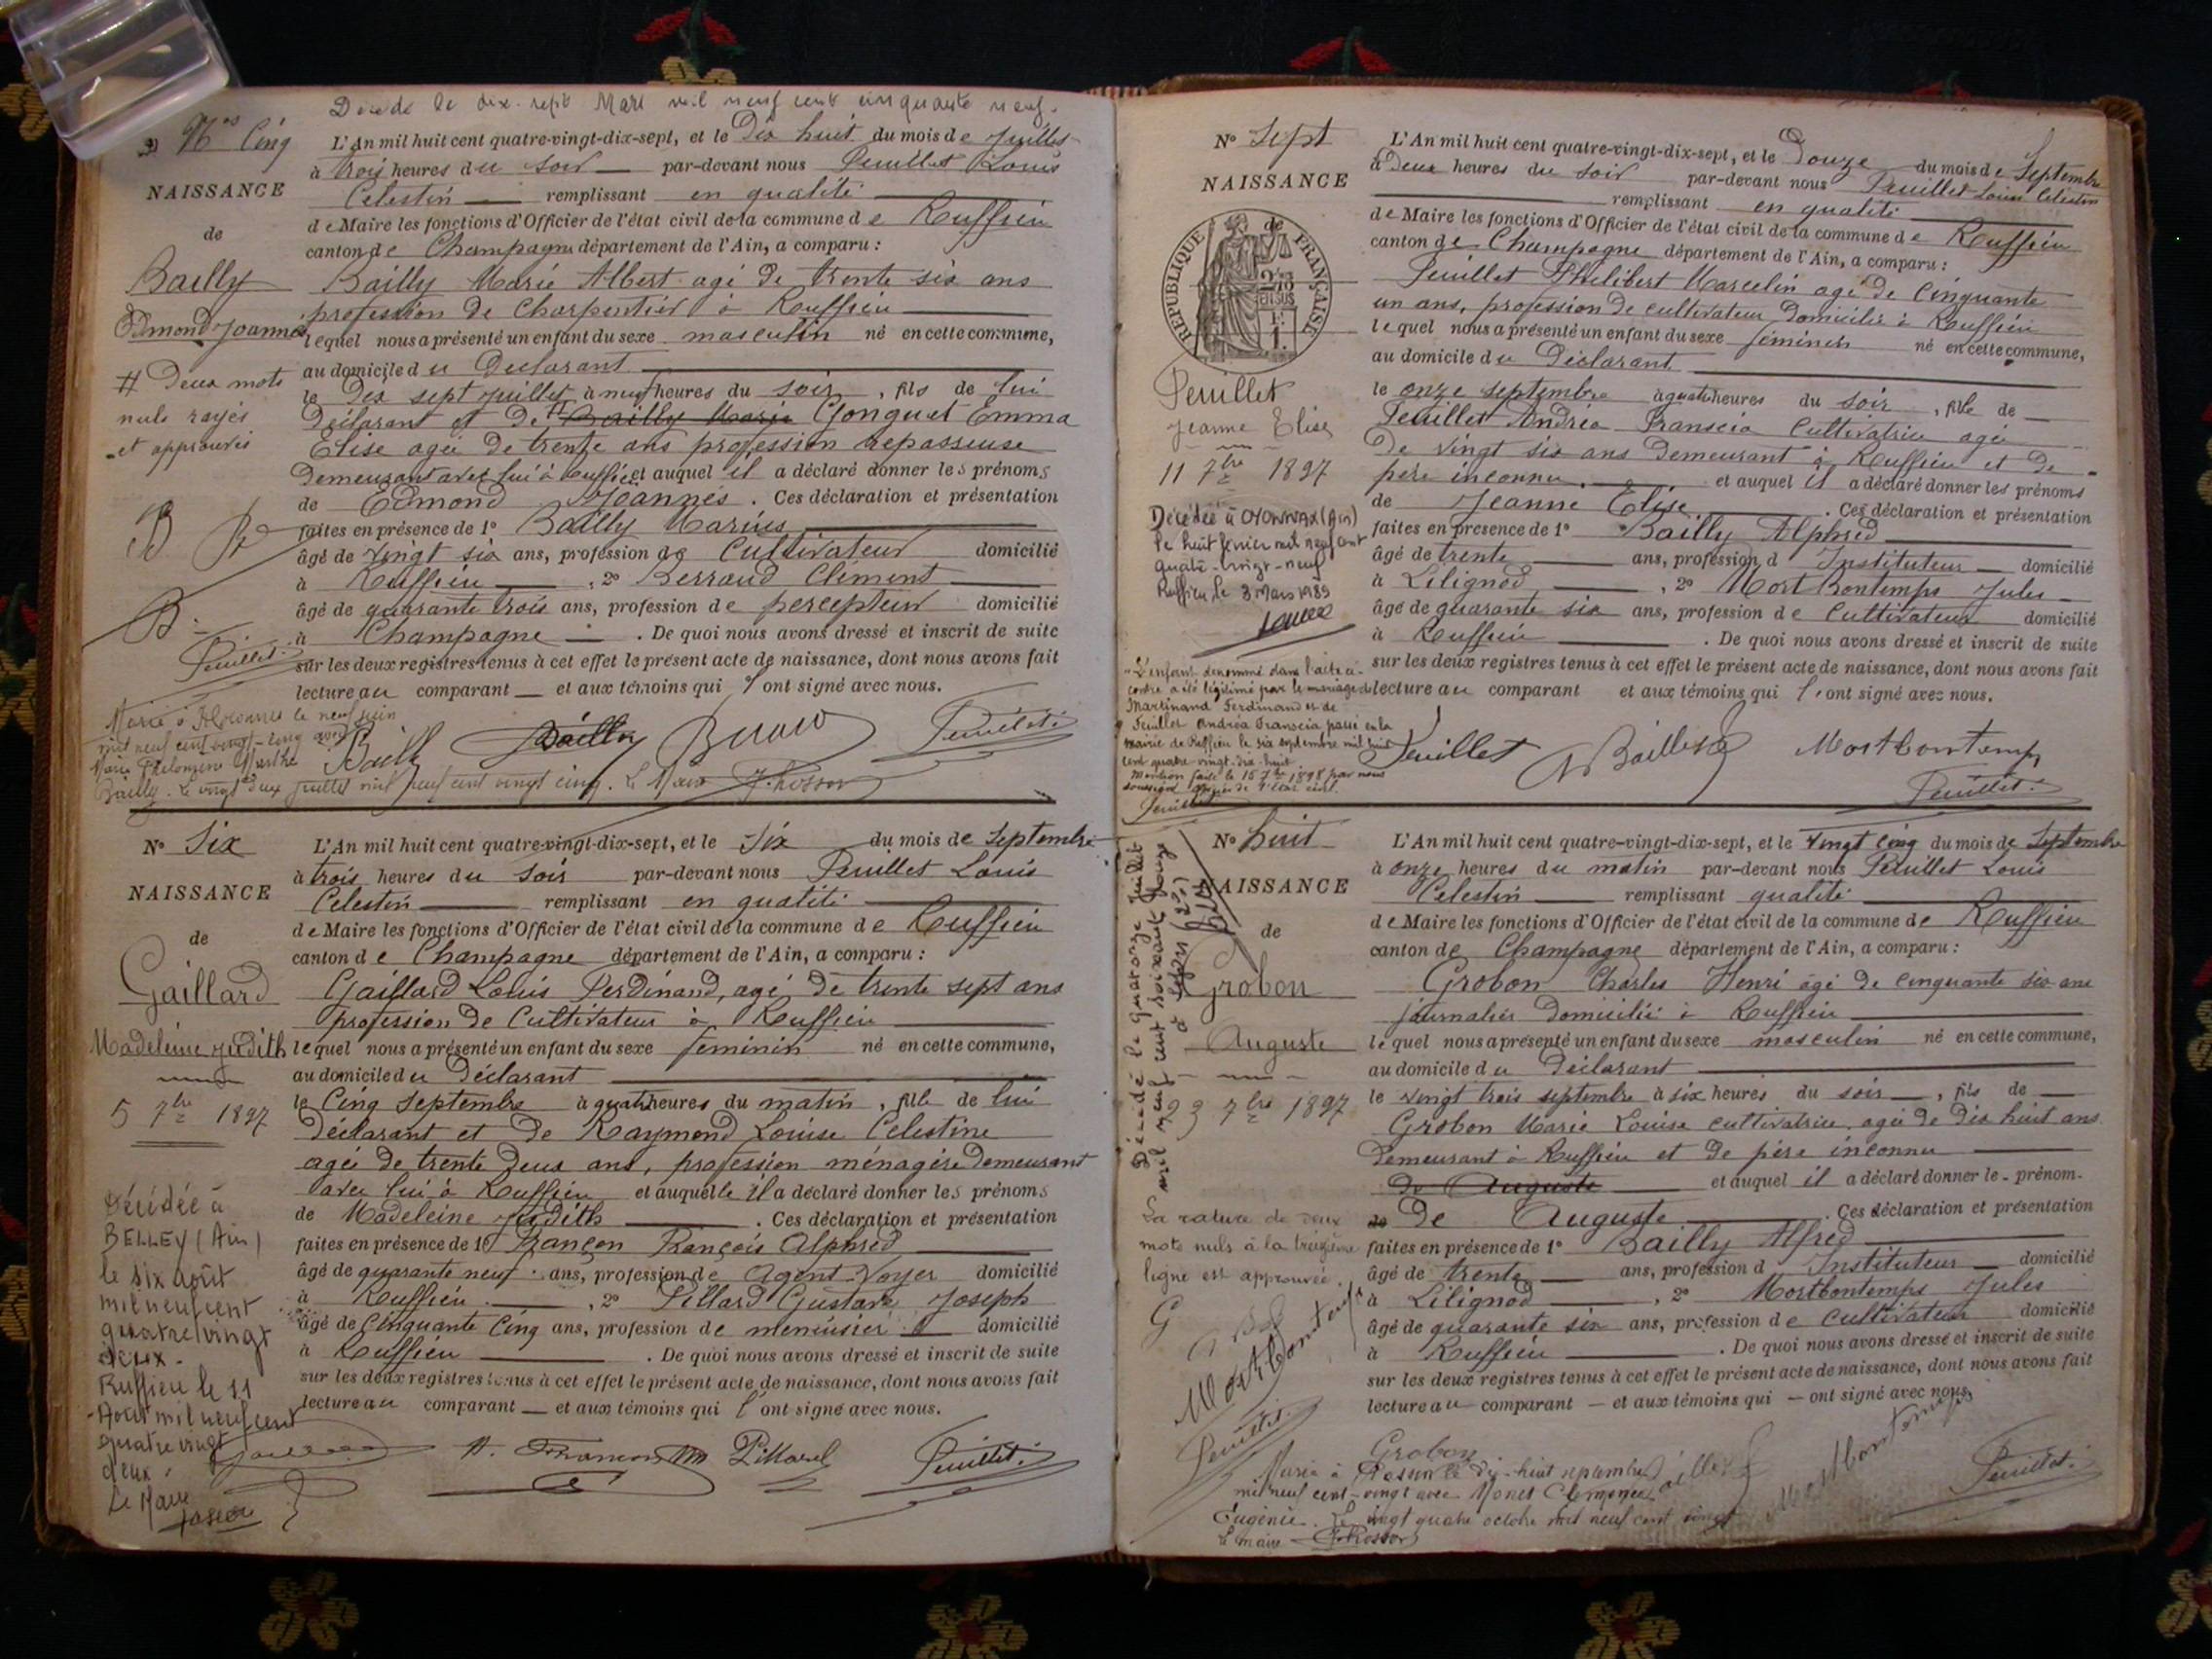 Décédé le dix-sept Mars mil neuf cent cinquante neuf.
Nos Cinq
NAISSANCE
de
Bailly
Edmond Joannès
# Deux mots
nuls rayés
et approuvés
B
B
Peuillet
L'An mil huit cent quatre-vingt-dix-sept, et le Dix huit du mois de Juillet
à trois heures du soir par-devant nous Peuillet Louis
Célestin remplissant en qualité
de Maire les fonctions d'Officier de l'état civil de la commune de Ruffieu
canton de Champagne département de l'Ain, a comparu :
Bailly Marie Albert agé de trente six ans
profession de Charpentier à Ruffieu
lequel nous a présenté un enfant du sexe masculin né en cette commune,
au domicile du Déclarant
le Dix sept Juillet à neuf heures du soir, fils de lui
Déclarant et de # Bailly Marie Gonguet Emma
Elise agée de trente ans profession repasseuse
Demeurant avec lui à Ruffieu et auquel il a déclaré donner les prénoms
de Edmond Joannès. Ces déclaration et présentation
faites en présence de 1° Bailly Marius
âgé de vingt six ans, profession de Cultivateur domicilié
à Ruffieu, 2° Berraud Clément
âgé de quarante trois ans, profession de percepteur domicilié
à Champagne. De quoi nous avons dressé et inscrit de suite
sur les deux registres tenus à cet effet le présent acte de naissance, dont nous avons fait
lecture au comparant et aux témoins qui l'ont signé avec nous.
Marié à le neuf juin
mil neuf cent vingt-cinq avec
Marie Philomène Marthe
Bailly. Le vingt deux juillet mil neuf cent vingt cinq. Le Maire
Bailly Bailly Peuillet
N° Six
NAISSANCE
de
Gaillard
Madeleine Judith
5 7bre 1897
Décédée à
BELLEY (Ain)
le six août
mil neuf cent
quatre vingt
deux.
Ruffieu le 11
Août mil neuf cent
quatre vingt
deux.
Le Maire
L'An mil huit cent quatre-vingt-dix-sept, et le Six du mois de Septembre
à trois heures du soir par-devant nous Peuillet Louis
Célestin remplissant en qualité
de Maire les fonctions d'Officier de l'état civil de la commune de Ruffieu
canton de Champagne département de l'Ain, a comparu :
Gaillard Louis Ferdinand, agé de trente sept ans
profession de Cultivateur à Ruffieu
lequel nous a présenté un enfant du sexe féminin né en cette commune,
au domicile du Déclarant
le Cinq Septembre à quatre heures du matin, fille de lui
Déclarant et de Raymond Louise Célestine
agée de trente deux ans, profession ménagère demeurant
avec lui à Ruffieu et auquelle il a déclaré donner les prénoms
de Madeleine Judith. Ces déclaration et présentation
faites en présence de 1° Françon François Alphred
âgé de quarante neuf ans, profession de Agent-Voyer domicilié
à Ruffieu, 2° Pillard Gustave Joseph
âgé de Cinquante Cinq ans, profession de menuisier domicilié
à Ruffieu. De quoi nous avons dressé et inscrit de suite
sur les deux registres tenus à cet effet le présent acte de naissance, dont nous avons fait
lecture au comparant et aux témoins qui l'ont signé avec nous.
Peuillet
N° Sept
NAISSANCE
de
RÉPUBLIQUE FRANÇAISE
Peuillet
Jeanne Elise
11 7bre 1897
Décédée à OYONNAX (Ain)
le huit février mil neuf cent
quatre-vingt-neuf
Ruffieu le 3 Mars 1989
L'enfant dénommé dans l'acte ci-
contre a été légitimé par le mariage de
Martinand Ferdinand et de
Peuillet Andréa Francia passé en la
mairie de Ruffieu le six septembre mil huit
cent quatre-vingt-dix-huit
Mention faite le 15 7bre 1898 par nous
soussigné officier de l'état civil.
Peuillet
L'An mil huit cent quatre-vingt-dix-sept, et le Douze du mois de Septembre
à Deux heures du soir par-devant nous Peuillet Louis Célestin
remplissant en qualité
de Maire les fonctions d'Officier de l'état civil de la commune de Ruffieu
canton de Champagne département de l'Ain, a comparu :
Peuillet Philibert Marcelin agé de Cinquante
un ans, profession de cultivateur Domicilié à Ruffieu
lequel nous a présenté un enfant du sexe féminin né en cette commune,
au domicile du Déclarant
le onze septembre à quatre heures du soir, fille de
Peuillet Andréa Francia Cultivatrice agée
De vingt six ans Demeurant à Ruffieu et De
père inconnu. et auquel il a déclaré donner les prénoms
de Jeanne Elise. Ces déclaration et présentation
faites en présence de 1° Bailly Alphred
âgé de trente ans, profession d Instituteur domicilié
à Lilignod, 2° Mort Bontemps Jules
âgé de quarante six ans, profession de Cultivateur domicilié
à Ruffieu. De quoi nous avons dressé et inscrit de suite
sur les deux registres tenus à cet effet le présent acte de naissance, dont nous avons fait
lecture au comparant et aux témoins qui l'ont signé avec nous.
Peuillet Bailly Mortbontemps
Peuillet
N° huit
NAISSANCE
de
Grobon
Auguste
23 7bre 1897
Décédé le quatorze Juillet
mil neuf cent soixante
La rature de deux
mots nuls à la treizième
ligne est approuvée.
G
Mortbontemps
Peuillet
L'An mil huit cent quatre-vingt-dix-sept, et le vingt cinq du mois de Septembre
à onze heures du matin par-devant nous Peuillet Louis
Célestin remplissant qualité
de Maire les fonctions d'Officier de l'état civil de la commune de Ruffieu
canton de Champagne département de l'Ain, a comparu :
Grobon Charles Henri agé de cinquante six ans
journalier Domicilié à Ruffieu
lequel nous a présenté un enfant du sexe masculin né en cette commune,
au domicile du Déclarant
le vingt trois septembre à six heures du soir, fils de
Grobon Marie Louise cultivatrice, agée de Dix huit ans
Demeurant à Ruffieu et de père inconnu
de Auguste et auquel il a déclaré donner le prénom
de De Auguste. Ces déclaration et présentation
faites en présence de 1° Bailly Alfred
âgé de trente ans, profession d Instituteur domicilié
à Lilignod, 2° Mortbontemps Jules
âgé de quarante six ans, profession de cultivateur domicilié
à Ruffieu. De quoi nous avons dressé et inscrit de suite
sur les deux registres tenus à cet effet le présent acte de naissance, dont nous avons fait
lecture au comparant et aux témoins qui ont signé avec nous.
Grobon Bailly Mortbontemps Peuillet
Marié à le dix-huit septembre
mil neuf cent-vingt avec Monet Clémence
Eugénie. Le vingt quatre octobre mil neuf cent vingt
Le maire